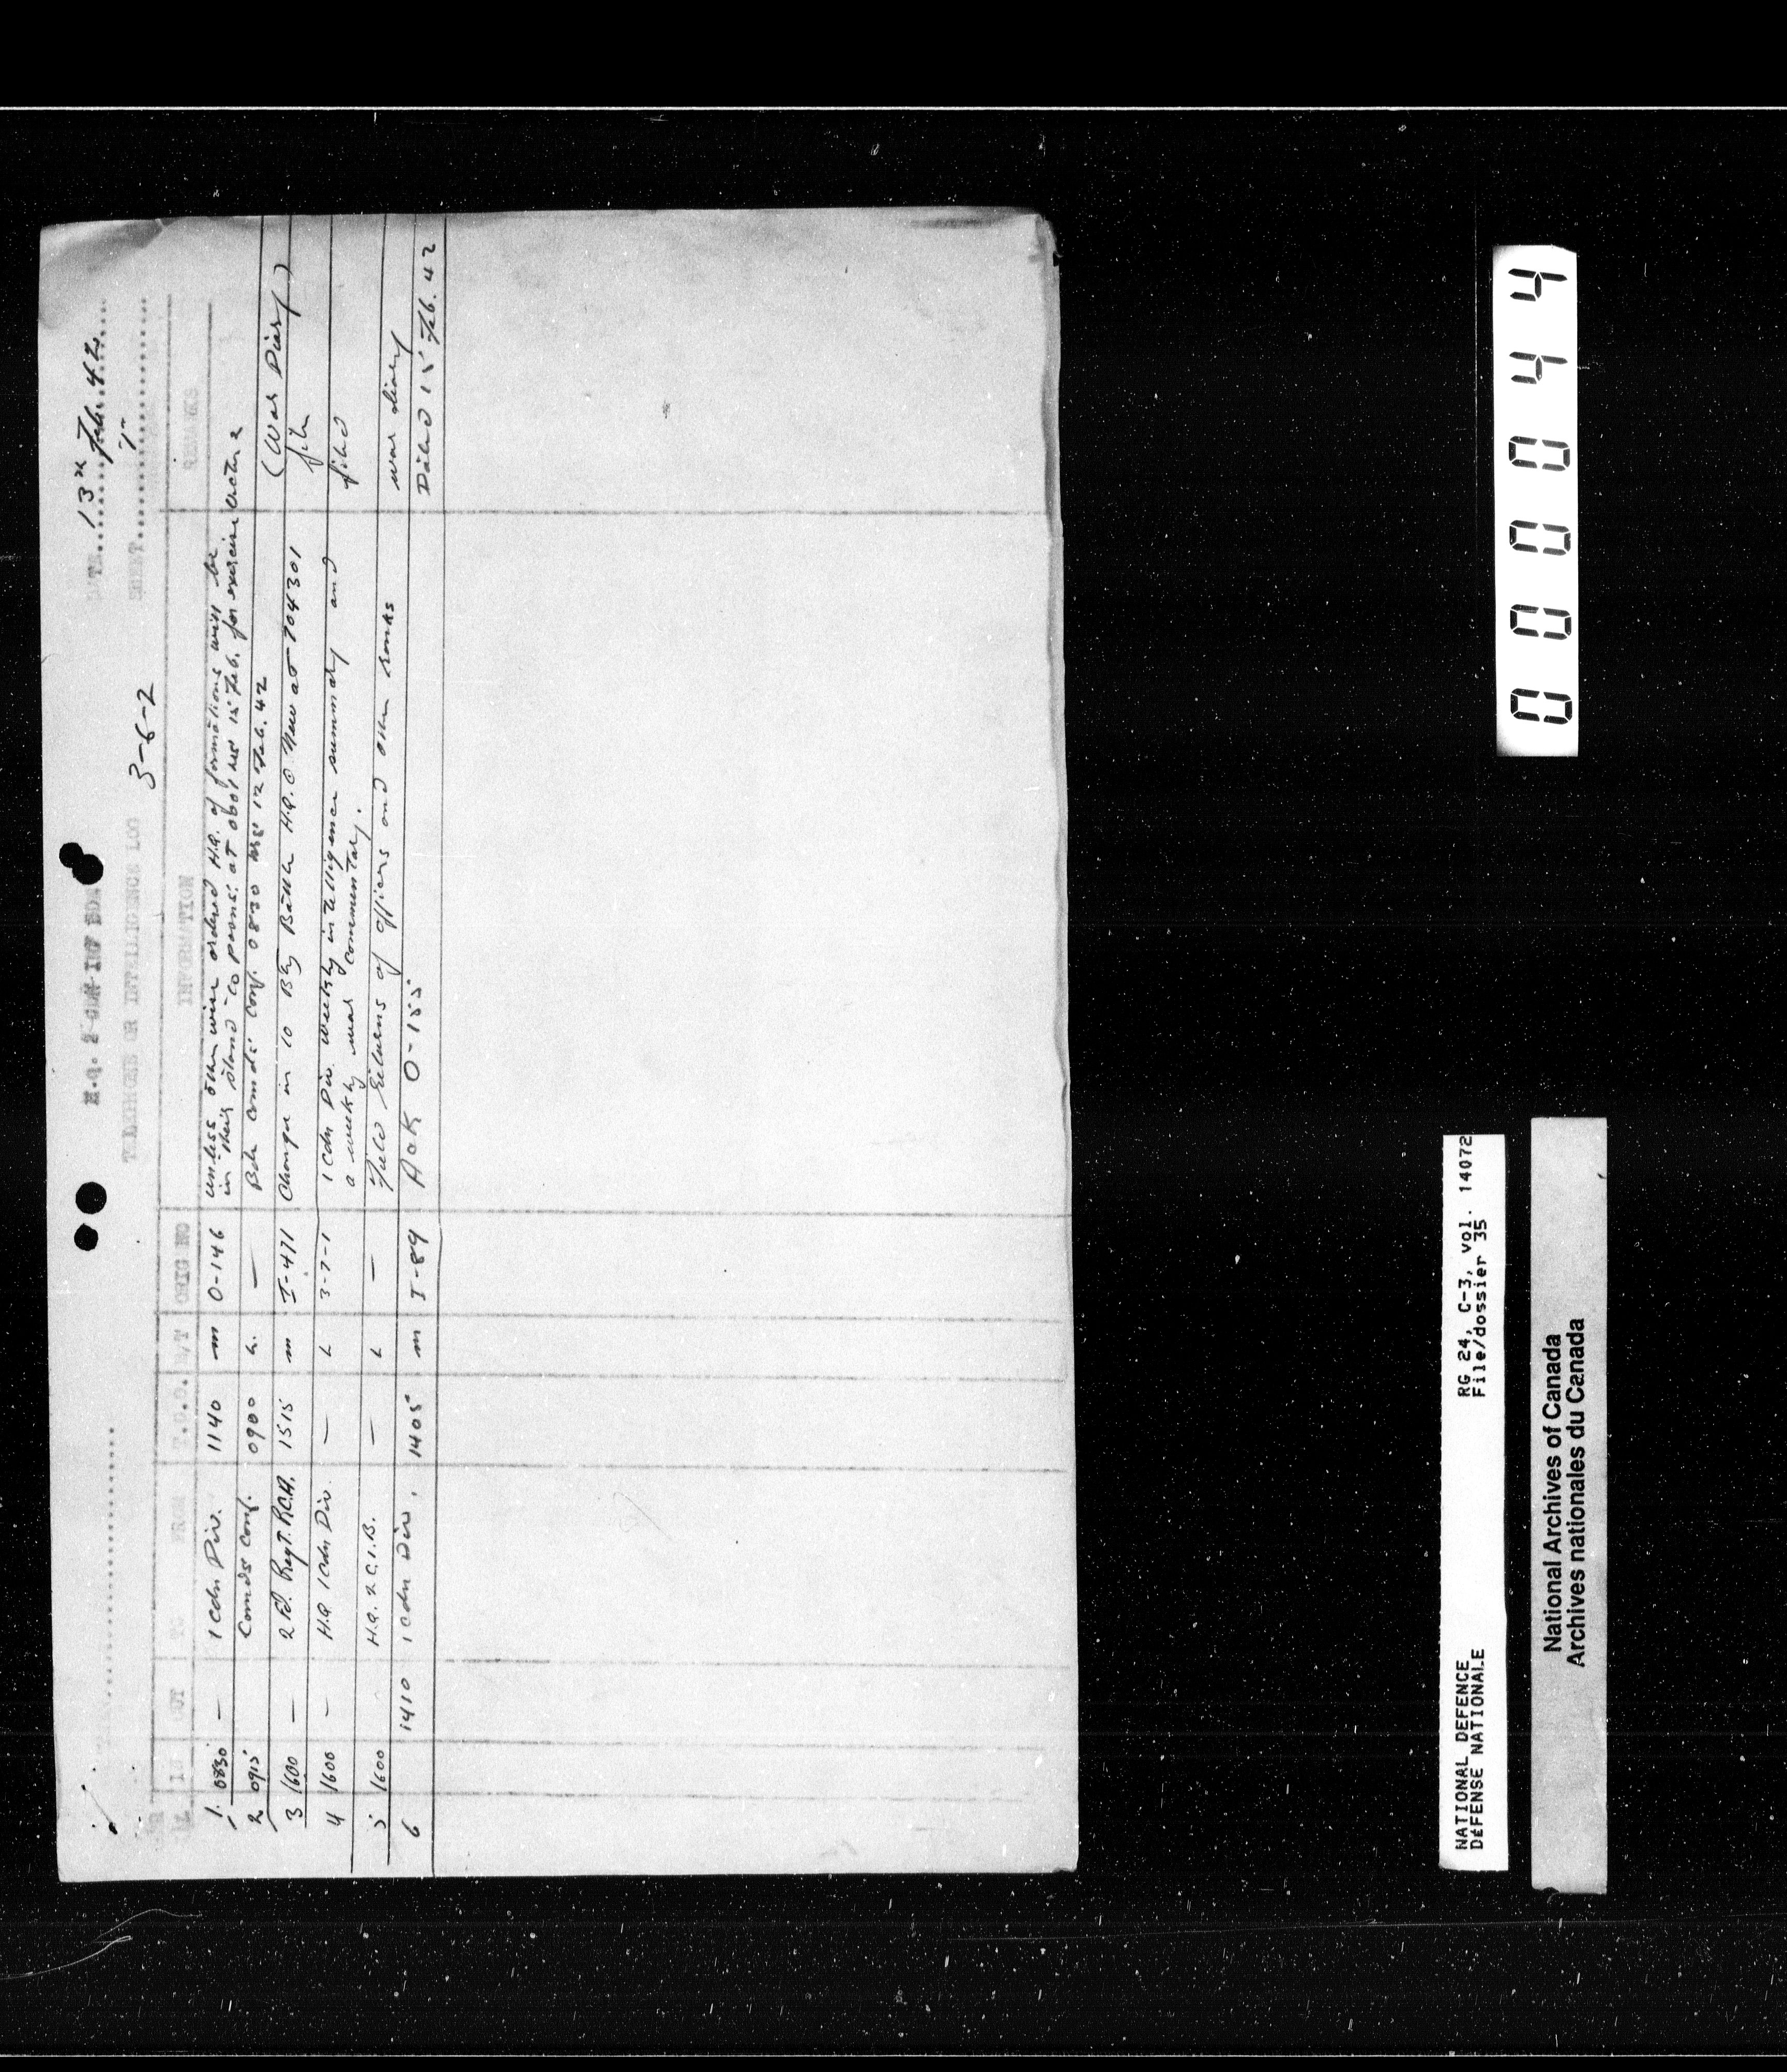 DATE 13th Feb. 42
H.Q. 2 CDN INF BDE
SHEET 1
TELEPHONE OR INTELLIGENCE LOG
3-6-2
IN OUT TO FROM T.O.O. M/T ORIG NO INFORMATION REMARKS
1. 0830 — 1 Cdn Div. 1140 m O-146 Unless otherwise ordered H.Q. of formations will be
in their stand to posns. at 0601 hrs 15 Feb. for exercise
2 0915 Comds Conf. 0900 — Bde Comds' Conf. 0830 hrs 12 Feb. 42
3 1600 — 2 Fd. Regt. R.C.A. 1515 m I-471 Change in 10 Bty Battle H.Q. O Now at 704301 (War Diary)
file
4 1600 — H.Q 1 Cdn Div. — L 3-7-1 1 Cdn Div. Weekly intelligence summary and filed
a weekly war commentary.
5 1600 H.Q. 2 C.I.B. — L — Field Returns of officers and other ranks war diary
6 1410 1 Cdn Div. 1405 m I-89 Ack O-155 Dated 15 Feb. 42
00044
RG 24, C-3, vol. 14072
File/dossier 35
NATIONAL DEFENCE
DÉFENSE NATIONALE
National Archives of Canada
Archives nationales du Canada